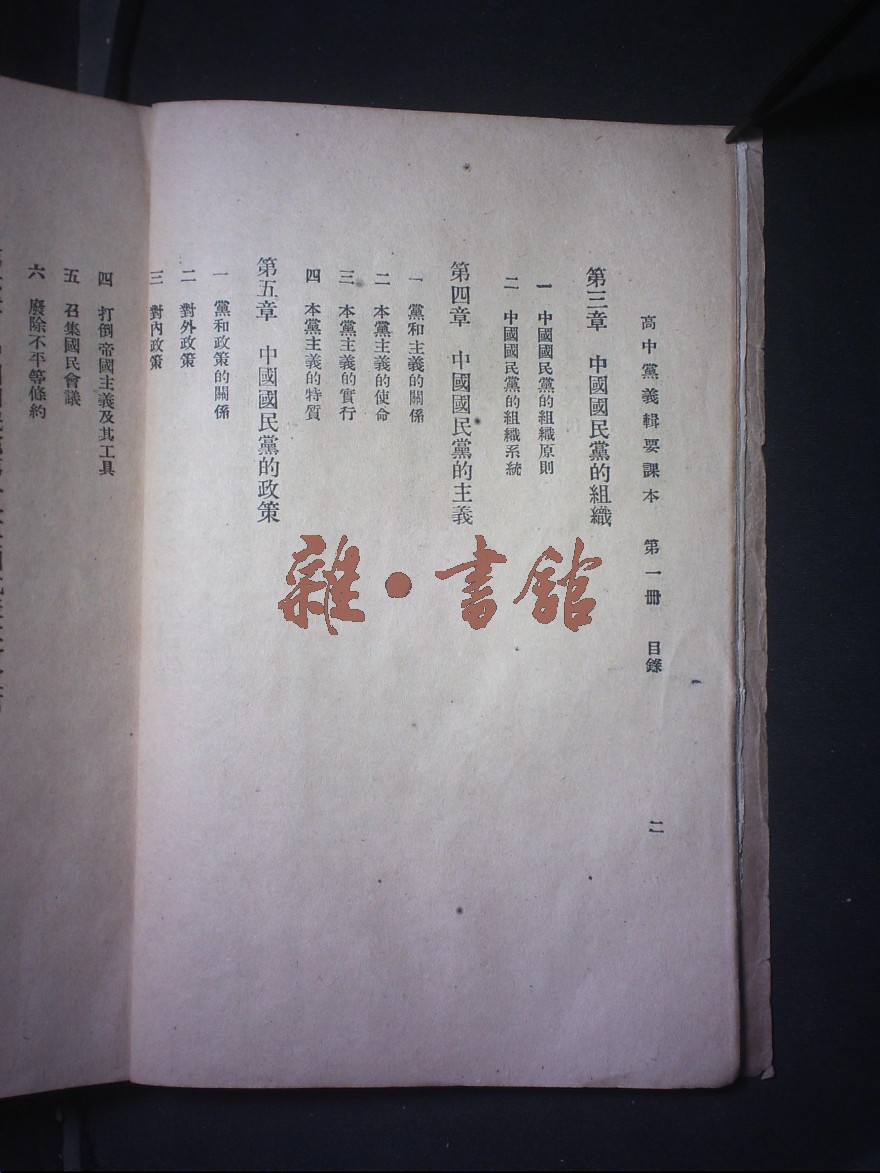 高中黨義輯要課本 第一冊 目錄 二
第三章 中國國民黨的組織
一 中國國民黨的組織原則
二 中國國民黨的組織系統
第四章 中國國民黨的主義
一 黨和主義的關係
二 本黨主義的使命
三 本黨主義的實行
四 本黨主義的特質
第五章 中國國民黨的政策
一 黨和政策的關係
二 對外政策
三 對內政策
四 打倒帝國主義及其工具
五 召集國民會議
六 廢除不平等條約
雜·書館